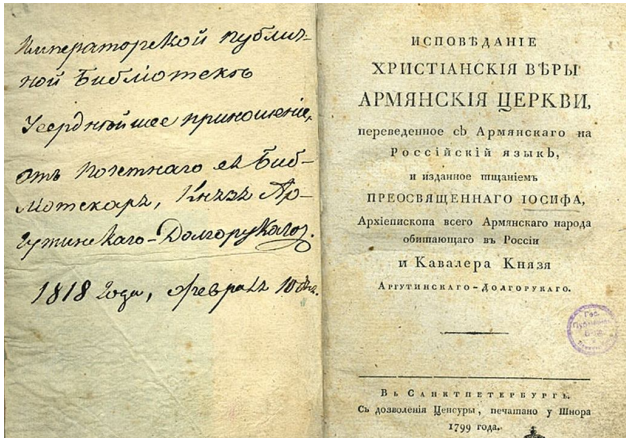 Императорской публич-
ной Библіотекѣ
Усерднѣйшее приношеніе,
отъ Почетнаго ея Биб-
ліотекаря, Князя Ар-
гутинскаго-Долгорукаго.
1818 года, февраля 10 дня.
ИСПОВѢДАНІЕ
ХРИСТІАНСКІЯ ВѢРЫ
АРМЯНСКІЯ ЦЕРКВИ,
переведенное съ Армянскаго на
Россійскій языкъ,
и изданное тщаніемъ
ПРЕОСВЯЩЕННАГО ІОСИФА,
Архіепископа всего Армянскаго народа
обитающаго въ Россіи
и Кавалера Князя
Аргутинскаго-Долгорукаго.
Въ Санктпетербургѣ.
Съ дозволенія Цензуры, печатано у Шнора
1799 года.
Гос.